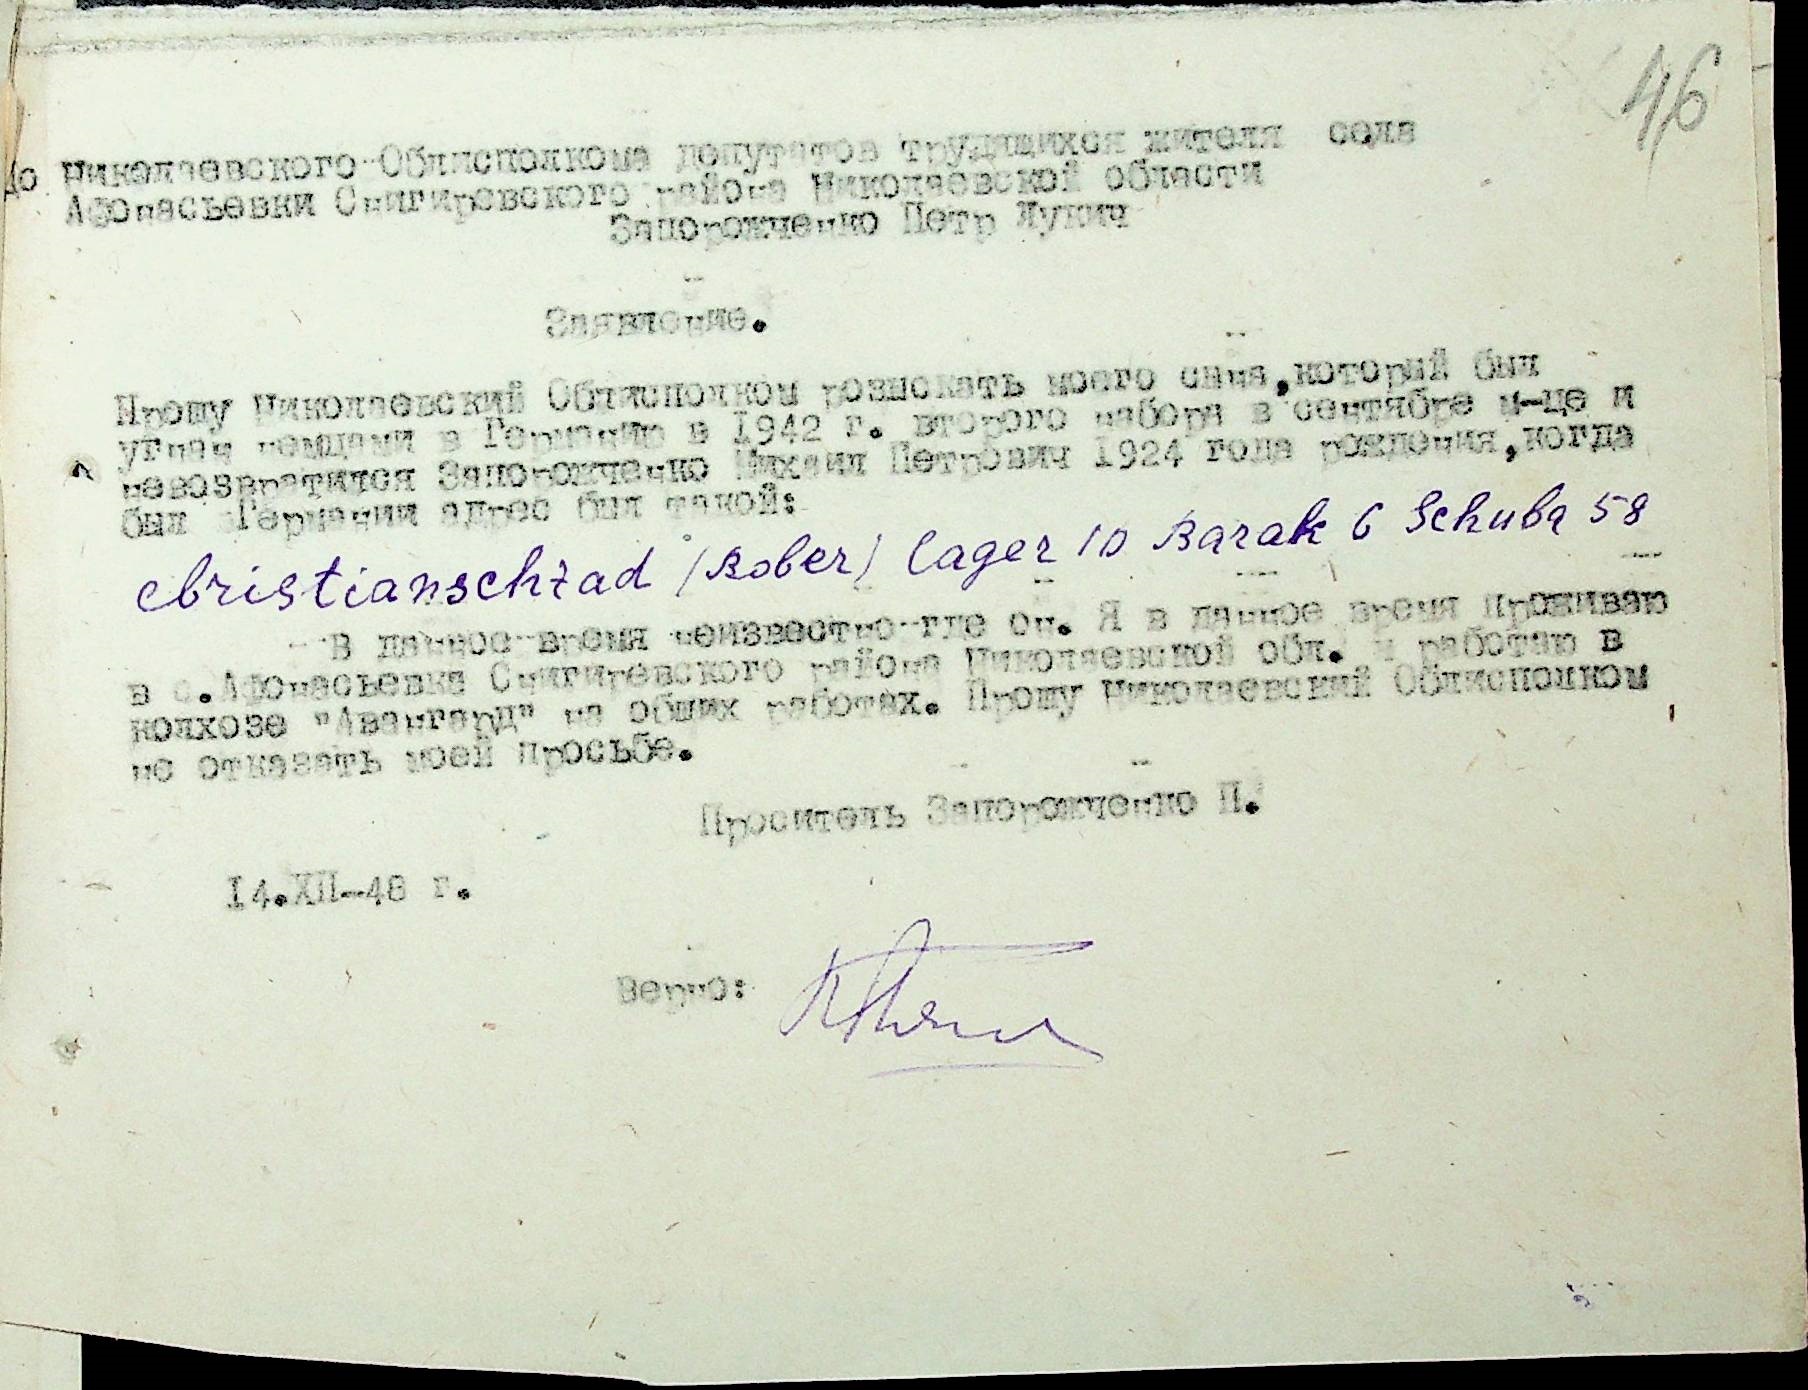 46
до Николаевского Облисполкома депутатов трудящихся жителя села
Афонасьевки Снигиревского района Николаевской области
Запорожченко Петр Лукич
Заявление.
Прошу Николаевский Облисполком розыскать моего сина, который был
угнан немцами в Германию в 1942 г. второго набора в сентябре м-це и
невозвратился Запорожченко Михаил Петрович 1924 года рождения, когда
был Германии адрес был такой:
Christianschtad (Bober) Lager 10 Barak 6 Schuba 58
В данное время неизвестно где он. Я в данное время проживаю
в с. Афонасьевка Снигиревского района Николаевской обл. и работаю в
колхозе "Авангард" на общих работах. Прошу Николаевский Облисполком
не отказать моей просьбе.
Проситель Запорожченко П.
14.XII-48 г.
Верно: